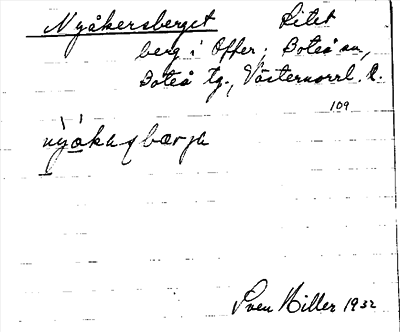 Nyåkersberget Litet
berg i Offer, Boteå sn,
Boteå tg., Västernorrl. l.
109
nyåkaʂbærja
Sven Hiller 1932